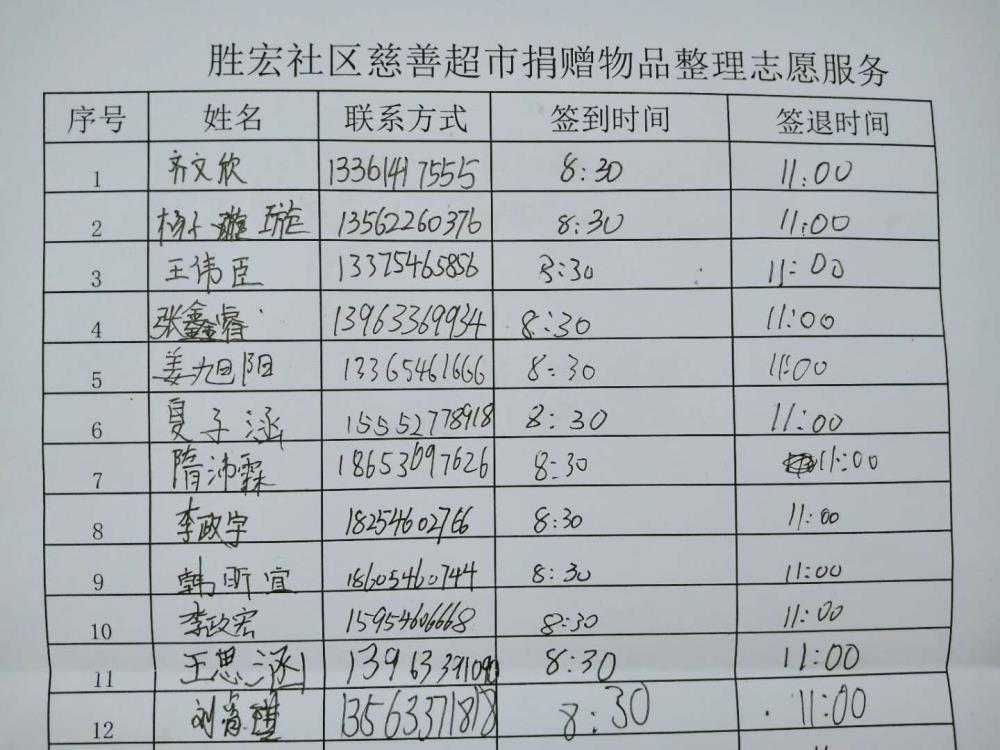 胜宏社区慈善超市捐赠物品整理志愿服务
序号 姓名 联系方式 签到时间 签退时间
1 齐文欣 13361417555 8:30 11:00
2 杨子璇 13562260376 8:30 11:00
3 王伟臣 13375465856 8:30 11:00
4 张鑫睿 13963369934 8:30 11:00
5 姜旭阳 13365461666 8:30 11:00
6 夏子涵 15552778918 8:30 11:00
7 隋沛霖 18653697626 8:30 11:00
8 李政宇 18254602766 8:30 11:00
9 韩昕宜 18605460744 8:30 11:00
10 李政宏 15954606668 8:30 11:00
11 王思涵 13963391090 8:30 11:00
12 刘 13563371818 8:30 11:00